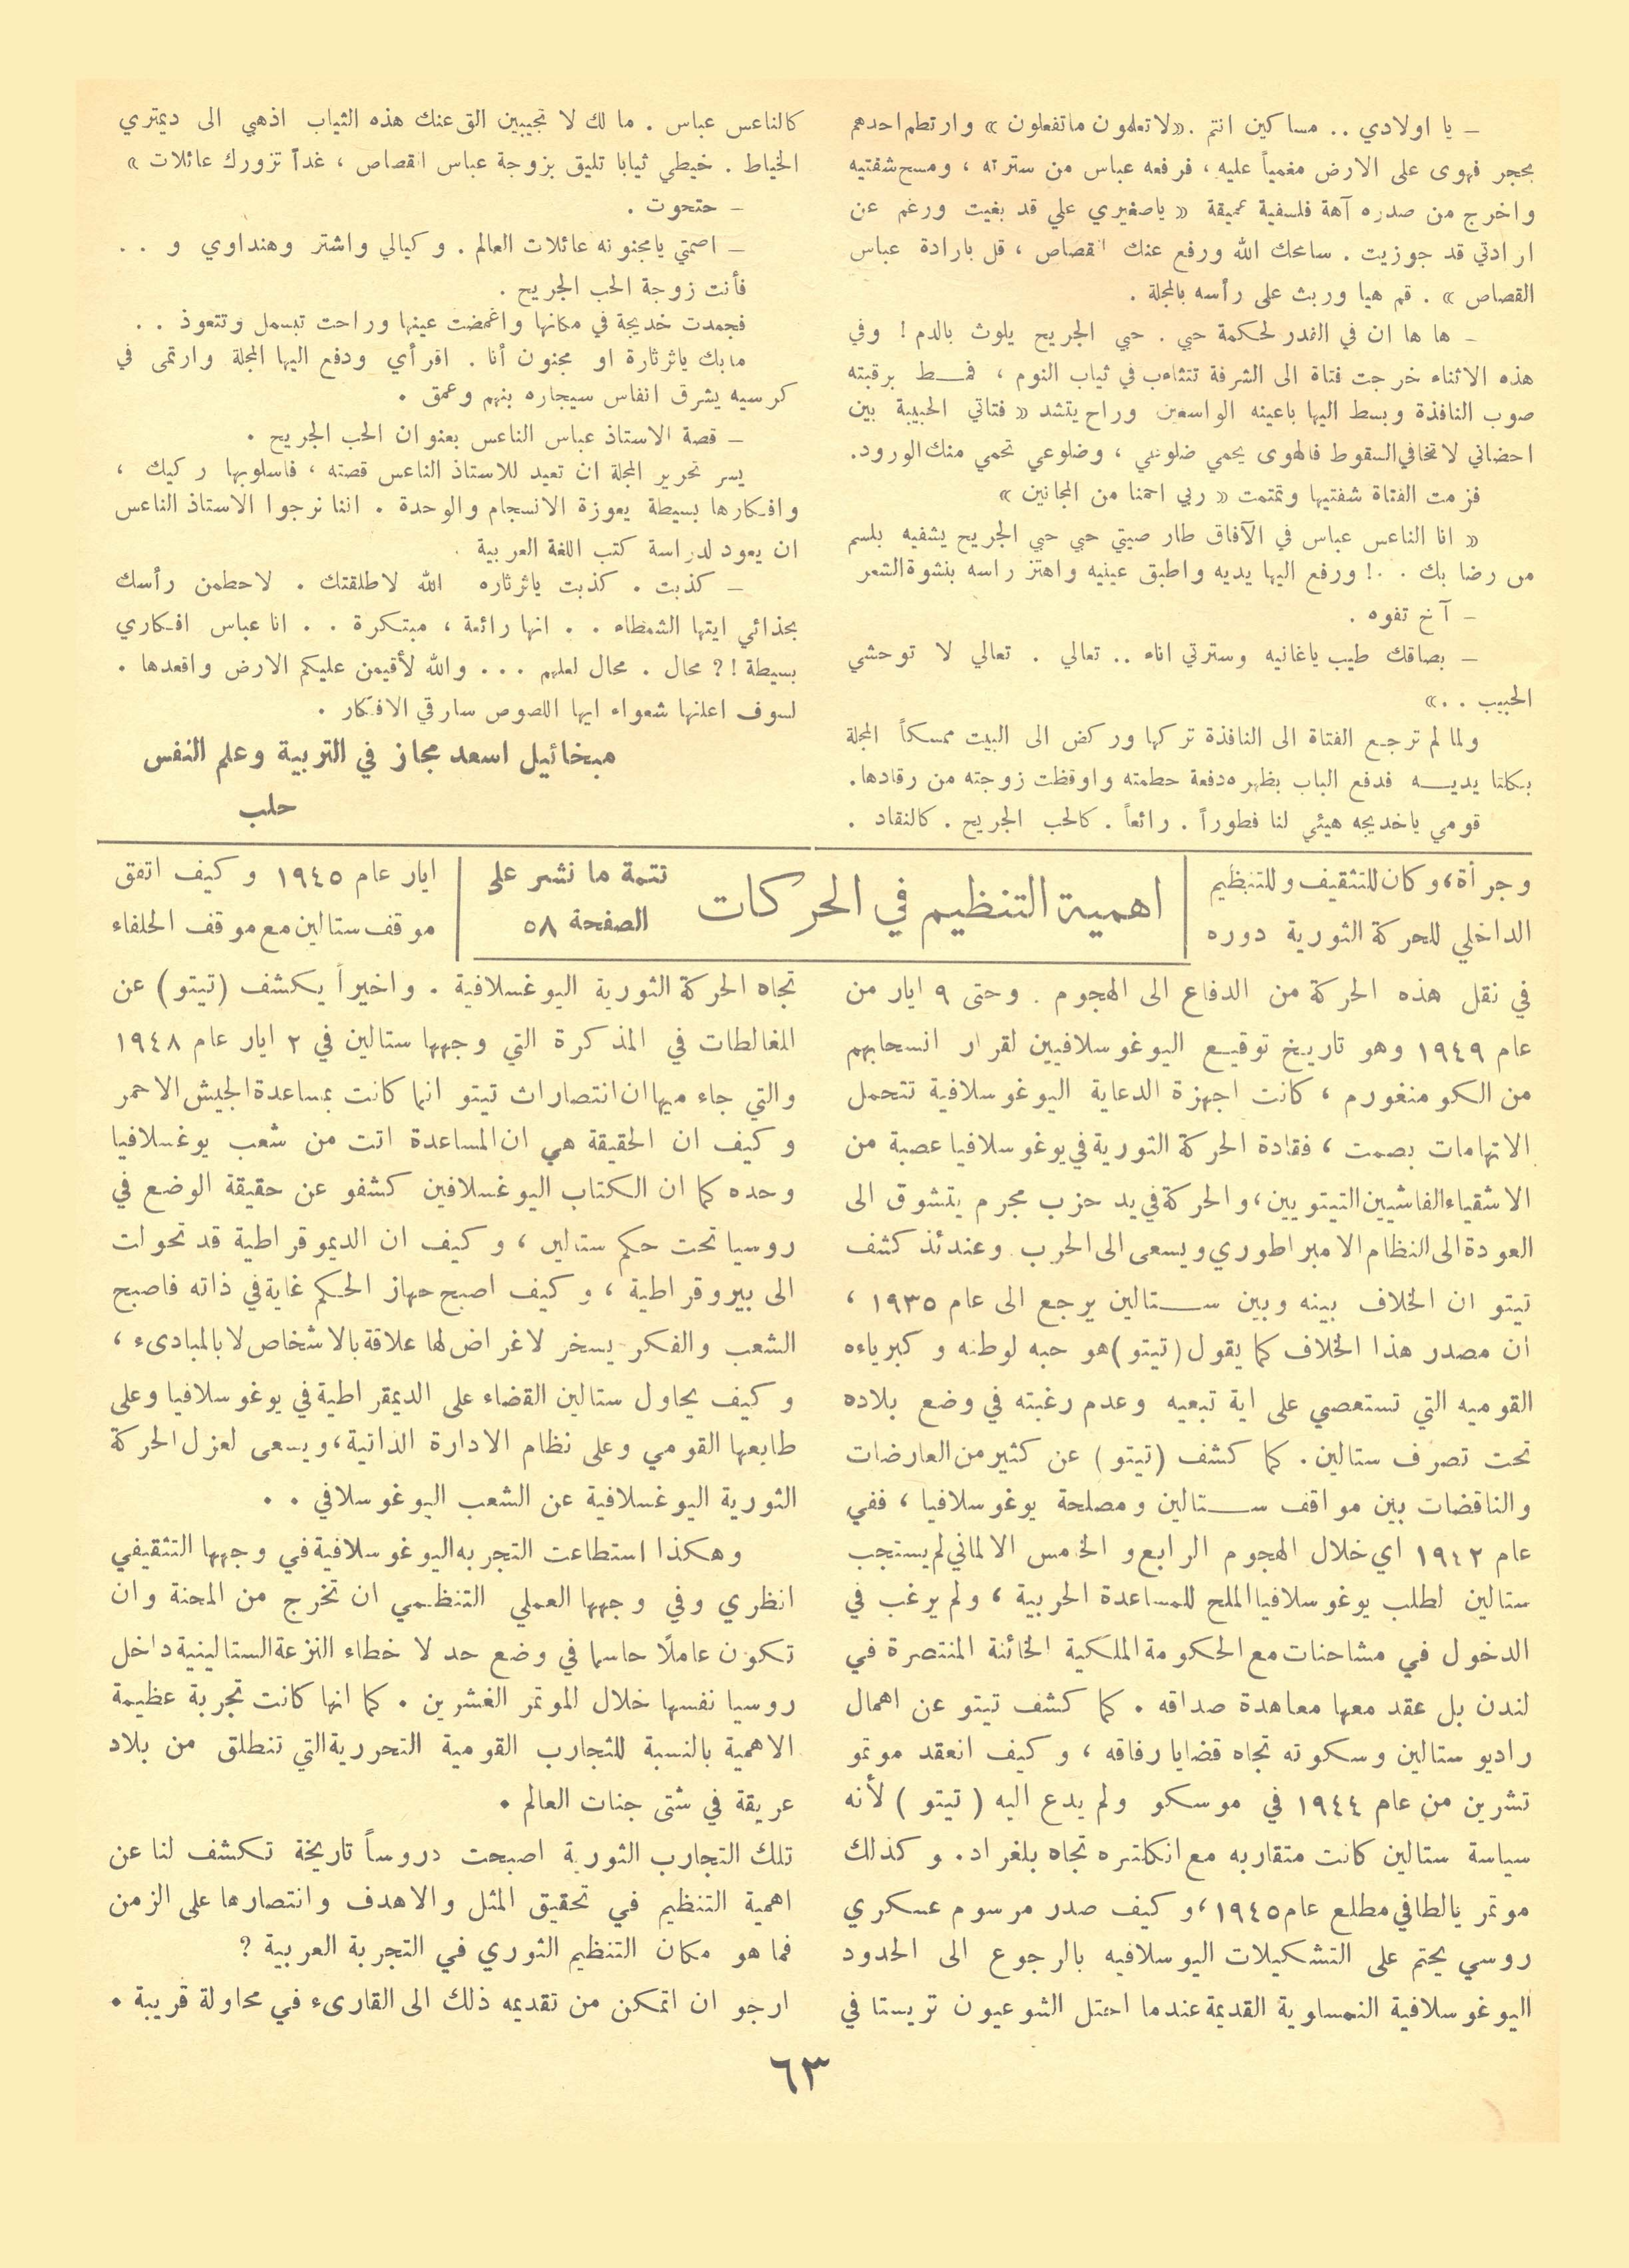 – يا اولادي .. مساكين انتم . «لا تعلمون ما تفعلون» وارتطم احدهم
بحجر فهوى على الارض مغمياً عليه ، فرفعه عباس من سترته ، ومسح شفتيه
واخرج من صدره آهة فلسفية عميقة « ياصغيري علي قد بغيت ورغم عن
ارادتي قد جوزيت . سامحك الله ورفع عنك القصاص ، قل بارادة عباس
القصاص » . قم هيا وربث على رأسه بالمجلة .
– ها ها ان في القدر لحكمة حبي . حبي الجريح يلوث بالدم ! وفي
هذه الاثناء خرجت فتاة الى الشرفة تتثاءب في ثياب النوم ، فمــط برقبته
صوب النافذة وبسط اليها باعينه الواسعين وراح يتشد « فتاتي الحبيبة بين
احضاني لا تخافي السقوط فالهوى يحمي ضلوعي ، وضلوعي تحمي منك الورود .
فزمت الفتاة شفتيها وتمتمت « ربي احمنا من المجانين »
« انا الناعس عباس في الآفاق طار صيتي حبي حبي الجريح يشفيه بلسم
من رضا بك . . ! ورفع اليها يديه واطبق عينيه واهتز راسه بنشوة الشعر
– آخ تفوه .
– بصاقك طيب ياغانيه وسترتي اناء .. تعالي . تعالي لا توحشي
الحبيب . . »
ولما لم ترجع الفتاة الى النافذة تركها وركض الى البيت ممسكاً المجلة
بكلتا يديــه فدفع الباب بظهره دفعة حطمته واوقظت زوجته من رقادها .
قومي ياخديجه هيئي لنا فطوراً . رائعاً . كالحب الجريح . كالنقاد .
كالناعس عباس . ما لك لا تجيبين الق عنك هذه الثياب اذهبي الى ديمتري
الخياط . خيطي ثيابا تليق بزوجة عباس القصاص ، غداً تزورك عائلات »
– حتحوت .
– اصمتي يامجنونه عائلات العالم . وكيالي واشتر وهنداوي و . .
فأنت زوجة الحب الجريح .
فجمدت خديجة في مكانها واغمضت عينها وراحت تبسمل وتتعوذ . .
مابك ياثرثارة او مجنون أنا . اقرأي ودفع اليها المجلة وارتمى في
كرسيه يشرق انفاس سيجاره بنهم وعمق .
– قصة الاستاذ عباس الناعس بعنوان الحب الجريح .
يسر تحرير المجلة ان تعيد للاستاذ الناعس قصته ، فاسلوبها ركيك ،
وافكارها بسيطة يعوزة الانسجام والوحدة . اننا نرجوا الاستاذ الناعس
ان يعود لدراسة كتب اللغة العربية .
– كذبت . كذبت ياثرثاره الله لاطلقتك . لاحطمن رأسك
بحذائي ايتها الشمطاء . . انها رائعة ، مبتكرة . . انا عباس افكاري
بسيطة !؟ محال . محال لعلهم . . . والله لأقيمن عليكم الارض واقعدها .
لسوف اعلنها شعواء ايها اللصوص سارقي الافكار .
ميخائيل اسعد مجاز في التربية وعلم النفس
حلب
اهمية التنظيم في الحركات
تتمة ما نشر على
الصفحة ٥٨
وجرأة، وكان للتثقيف وللتنظيم
الداخلي للحركة الثورية دوره
في نقل هذه الحركة من الدفاع الى الهجوم . وحتى ٩ ايار من
عام ١٩٤٩ وهو تاريخ توقيع اليوغوسلافيين لقرار انسحابهم
من الكومنغورم ، كانت اجهزة الدعاية اليوغوسلافية تتحمل
الاتهامات بصمت ، فقادة الحركة الثورية في يوغوسلافيا عصبة من
الاشقياء الفاشيين التيتويين، والحركة في يد حزب مجرم يتشوق الى
العودة الى النظام الامبراطوري ويسعى الى الحرب . وعندئذ كشف
تيتو ان الخلاف بينه وبين ســتالين يرجع الى عام ١٩٣٥ ،
ان مصدر هذا الخلاف كما يقول (تيتو) هو حبه لوطنه وكبرياءه
القوميه التي تستعصي على اية تبعيه وعدم رغبته في وضع بلاده
تحت تصرف ستالين . كما كشف (تيتو) عن كثير من العارضات
والناقضات بين مواقف ســتالين ومصلحة يوغوسلافيا ، ففي
عام ١٩٤٢ اي خلال الهجوم الرابع والخمس الالماني لم يستجب
ستالين لطلب يوغوسلافيا الملح للمساعدة الحربية ، ولم يرغب في
الدخول في مشاحنات مع الحكومة الملكية الخائنة المنتصرة في
لندن بل عقد معها معاهدة صداقه . كما كشف تيتو عن اهمال
راديو ستالين وسكوته تجاه قضايا رفاقه ، وكيف انعقد موتمو
تشرين من عام ١٩٤٤ في موسكو ولم يدع اليه ( تيتو ) لأنه
سياسة ستالين كانت متقاربه مع انكلتره تجاه بلغراد . وكذلك
موتمر يالطا في مطلع عام ١٩٤٥، وكيف صدر مرسوم عسكري
روسي يحتم على التشكيلات اليوسلافيه بالرجوع الى الحدود
اليوغوسلافية النمساوية القديمة عندما احتل الشوعيون تريستا في
ايار عام ١٩٤٥ وكيف اتفق
موقف ستالين مع موقف الحلفاء
تجاه الحركة الثورية اليوغسلافية . واخيراً يكشف (تيتو) عن
المغالطات في المذكرة التي وجهها ستالين في ٢ ايار عام ١٩٤٨
والتي جاء ميها ان انتصارات تيتو انما كانت بمساعدة الجيش الاحمر
وكيف ان الحقيقة هي ان المساعدة اتت من شعب يوغسلافيا
وحده كما ان الكتاب اليوغسلافين كشفو عن حقيقة الوضع في
روسيا تحت حكم ستالين ، وكيف ان الديموقراطية قد تحولت
الى بيروقراطية ، وكيف اصبح جهاز الحكم غاية في ذاته فاصبح
الشعب والفكر يسخر لاغراض لها علاقة بالاشخاص لا بالمبادىء ،
وكيف يحاول ستالين القضاء على الديمقراطية في يوغوسلافيا وعلى
طابعها القومي وعلى نظام الادارة الذاتية، ويسعى لعزل الحركة
الثورية اليوغسلافية عن الشعب اليوغوسلافي . .
وهكذا استطاعت التجربه اليوغوسلافية في وجهها التثقيفي
انظري وفي وجهها العملي التنظمي ان تخرج من المحنة وان
تكون عاملًا حاسما في وضع حد لا خطاء النزعة الستالينية داخل
روسيا نفسها خلال الموتمر الغشرين . كما انها كانت تجربة عظيمة
الاهمية بالنسبة للتجارب القومية التحررية التي تنطلق من بلاد
عريقة في شتى جنات العالم .
تلك التجارب الثورية اصبحت دروساً تاريخة تكشف لنا عن
اهمية التنظيم في تحقيق المثل والاهدف وانتصارها على الزمن
فما هو مكان التنظيم الثوري في التجربة العربية ؟
ارجو ان اتمكن من تقديمه ذلك الى القارىء في محاولة قريبة .
٦٣